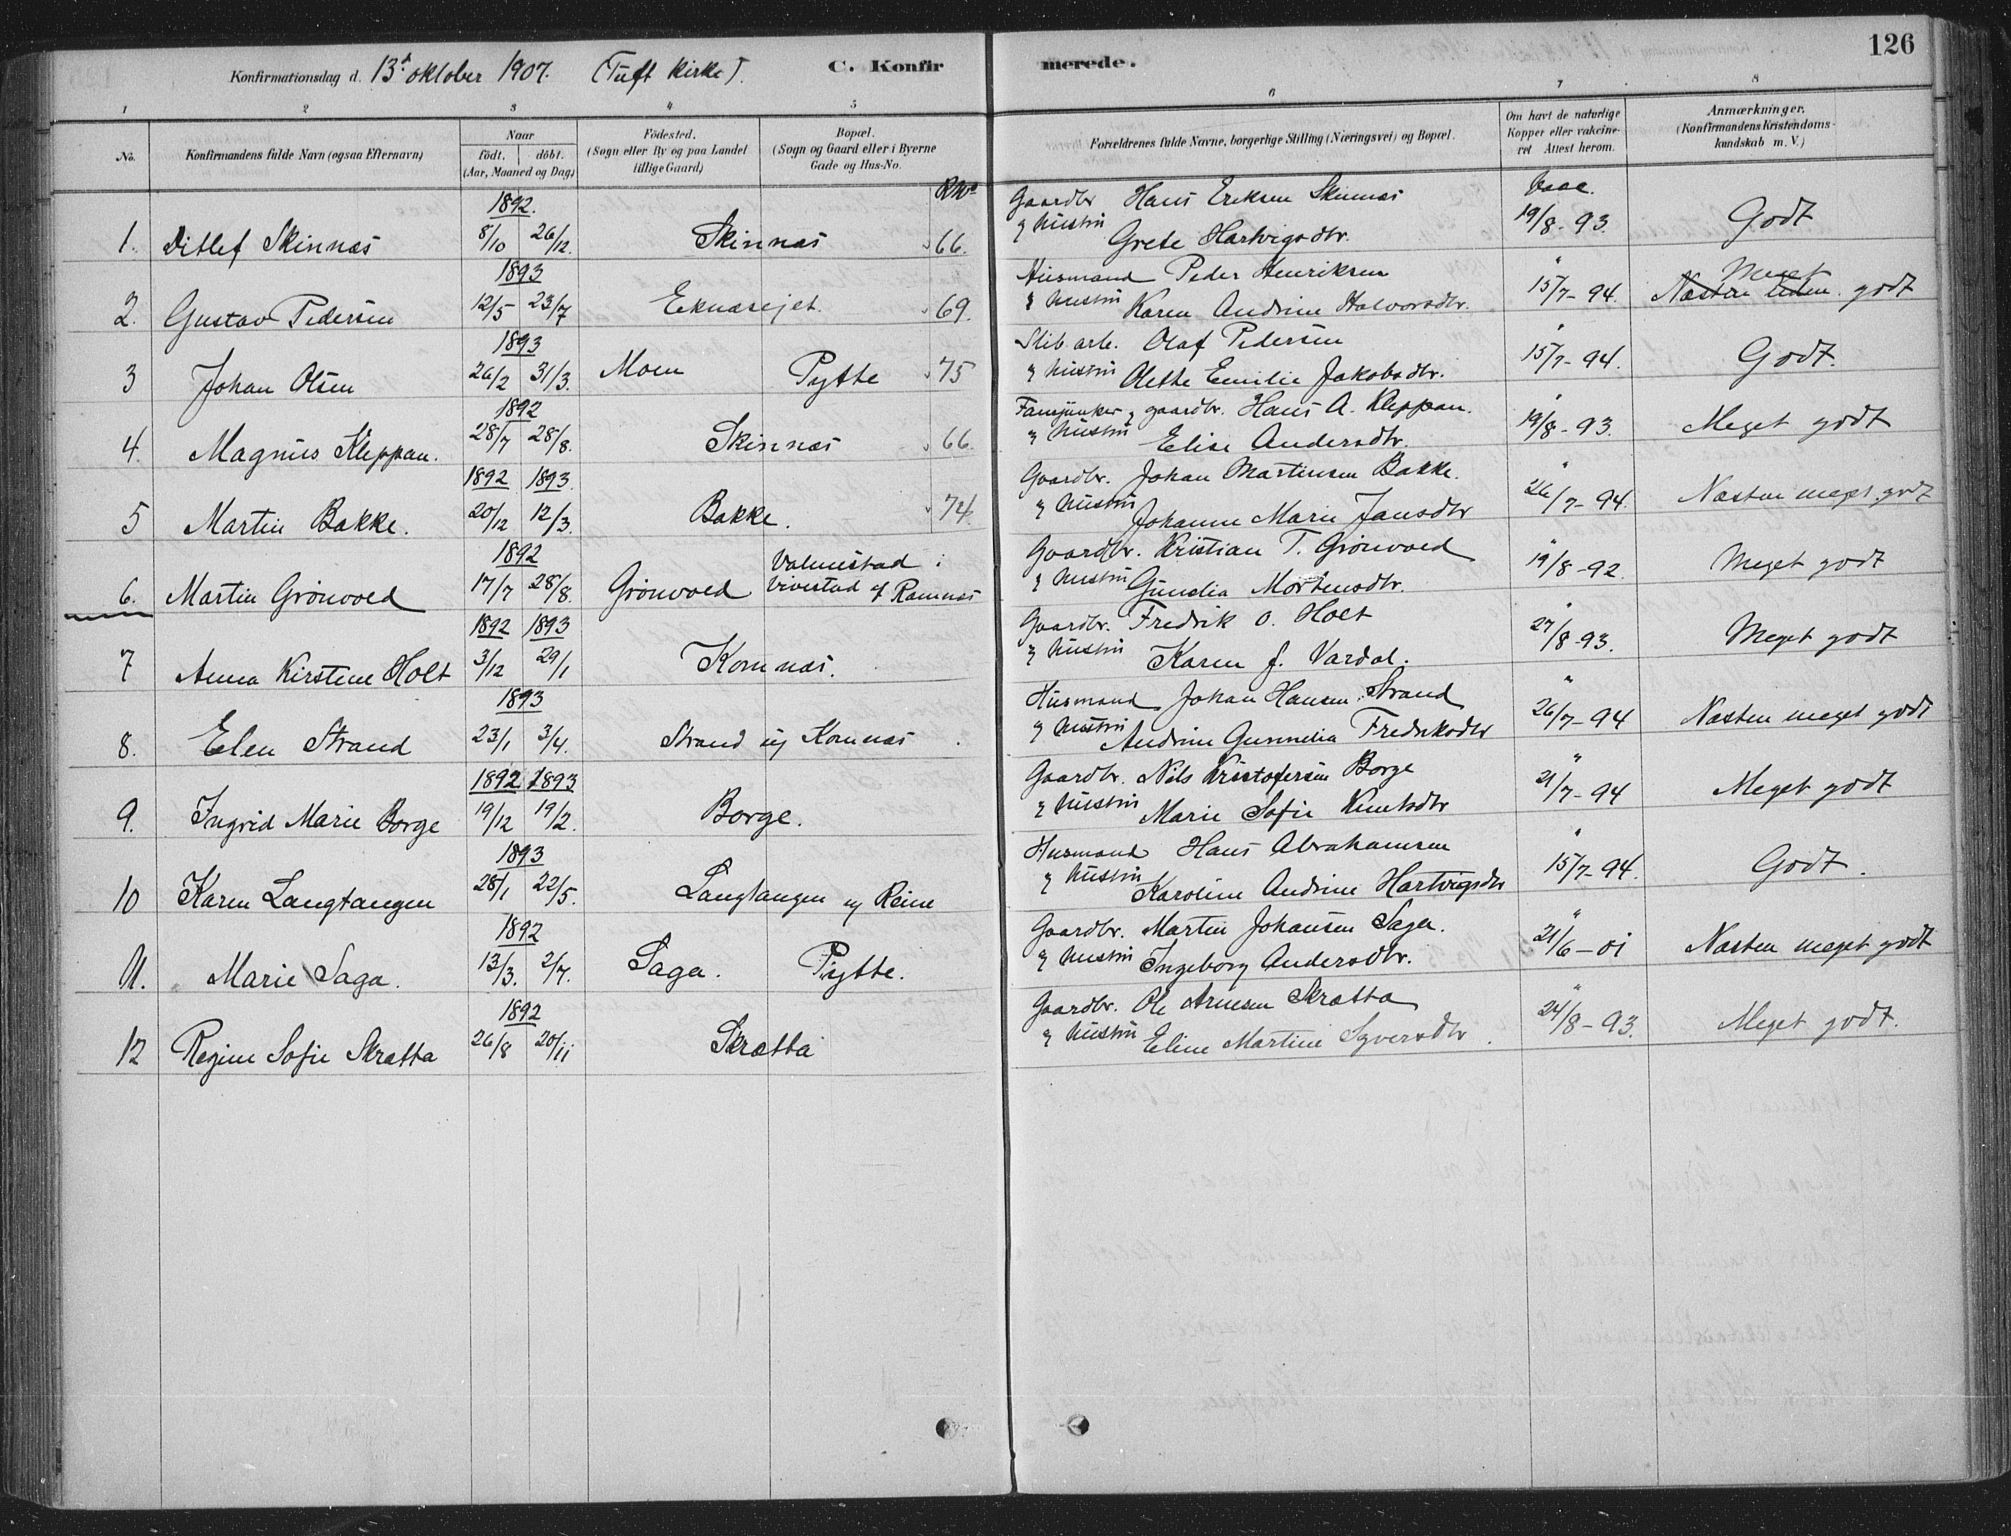 126
Konfirmationsdag d. 13de oktober 1907. (Tuft kirke).
C. Konfirmerede.
1 2 3 4 5 6 7 8
No.
Konfirmandens fulde Navn (ogsaa Efternavn)
Naar
født. døbt.
(Aar, Maaned og Dag)
Fødested.
(Sogn eller By og paa Landet
tillige Gaard)
Bopæl.
(Sogn og Gaard eller i Byerne
Gade og Hus-No.
Forældrenes fulde Navne, borgerlige Stilling (Næringsvei) og Bopæl.
Om havt de naturlige
Kopper eller vakcine-
ret Attest herom.
Anmærkninger.
(Konfirmandens Kristendoms-
kundskab m. V.)
1892. Gaardbr. Hans Eriksen Skinnæs Vacc.
1. Ditlef Skinnæs 8/10 26/12. Skinnæs 66. & hustru Grete Hartvigsdtr. 19/8-93. Godt
1893 Husmand Peder Henriksen " Meget
2. Gustav Pedersen 12/5 23/7 Eknæsejet. 69. & hustru Karen Andrine Halvorsdtr. 15/7-94. Næsten godt
1893 Slib.arb. Olaf Pedersen "
3 Johan Olsen 26/2 31/3. Moen Pytte 75 & hustru Olette Emilie Jakobsdtr. 15/7-94. Godt.
1892 Fanejunker & gaardbr. Hans A. Kleppan. "
4. Magnus Kleppan. 28/7 28/8. Skinnæs 66. & hustru Elise Andersdtr. 19/8-93. Meget godt
1892 1893. Gaardbr. Johan Martinsen Bakke. "
5 Martin Bakke. 20/12 12/3. Bakke. 74. & hustru Johanne Marie Jansdtr 26/7-94. Næsten meget godt
1892 Valmestad i Gaardbr. Kristian T. Grönvold "
6. Martin Grönvold 17/7 28/8. Grönvold Vivestad af Ramnæs & hustru Gunelia Mortensdtr. 19/8-92. Meget godt
1892 1893 Gaardbr. Fredrik O. Holt "
7 Anna Kirstine Holt 3/12 29/1 Komnæs. & hustru Karen J. Vardal. 27/8-93. Meget godt
1893 Husmand Johan Hansen Strand "
8. Elen Strand 23/1 3/4. Strand u/ Komnæs & hustru Andrine Gunnelia Fredriksdtr 26/7-94 Næsten meget godt
1892 1893 Gaardbr. Nils Kristofersen Borge "
9. Ingrid Marie Borge 19/12 19/2. Borge. & hustru Marie Sofie Knutsdtr 21/7-94 Meget godt
1893 Husmand Hans Abrahamsen "
10 Karen Langtangen 28/1 22/5. Langtangen u/ Reine & hustru Karoline Andrine Hartvigsdtr 15/7-94. Godt.
1892 Gaardbr. Martin Johansen Saga. "
11. Marie Saga. 13/3. 2/7. Saga. Pytte. & hustru Ingeborg Andersdtr. 21/6-01 Næsten meget godt
1892 Gaardbr. Ole Arnesen Skrætta "
12 Regine Sofie Skrætta 26/8 20/11 Skrætta & hustru Eline Martine Syversdtr. 24/8-93. Meget godt.